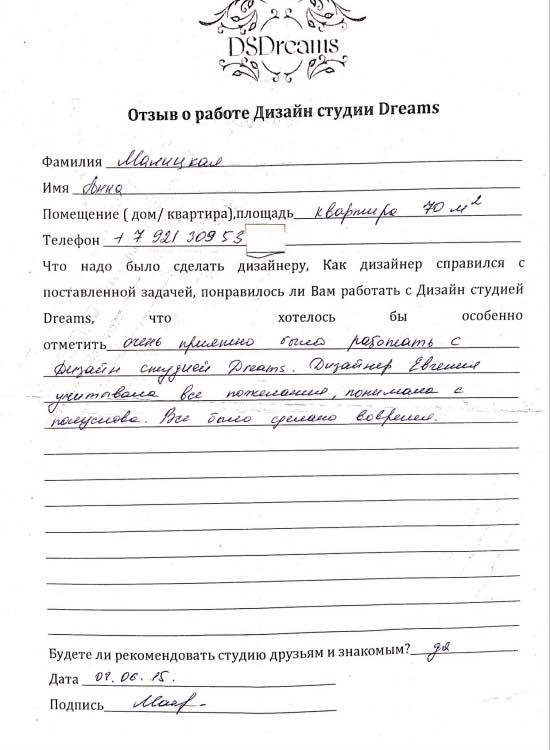 DSDreams
Отзыв о работе Дизайн студии Dreams
Фамилия Малицкая
Имя Анна
Помещение ( дом/ квартира),площадь квартира 70 м²
Телефон +7 921 309 53
Что надо было сделать дизайнеру, Как дизайнер справился с
поставленной задачей, понравилось ли Вам работать с Дизайн студией
Dreams, что хотелось бы особенно
отметить очень приятно было работать с
Дизайн студией Dreams. Дизайнер Евгения
учитывала все пожелания, понимала с
полуслова. Все было сделано вовремя.
Будете ли рекомендовать студию друзьям и знакомым? да
Дата 07.06.15.
Подпись